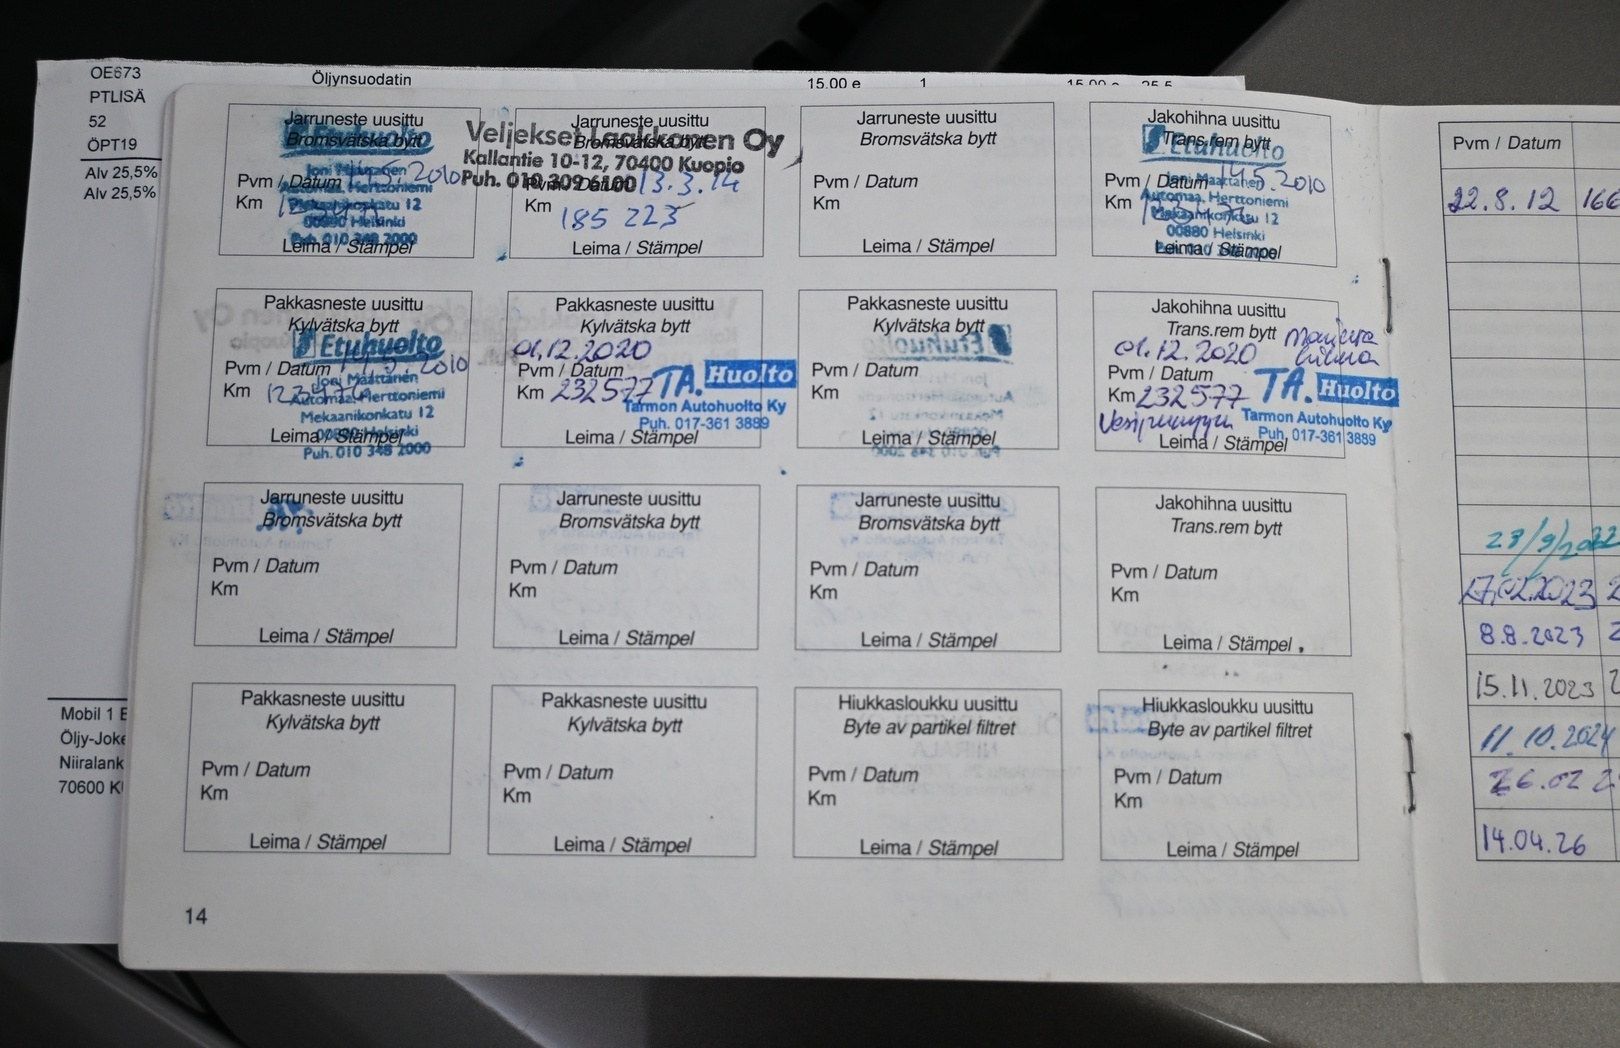 OE673
Öljynsuodatin
15.00 e
1
PTLISÄ
52
ÖPT19
Alv 25,5%
Alv 25,5%
Mobil 1 E
Öljy-Joke
Niiralank
70600 K
Jarruneste uusittu
Bromsvätska bytt
Etuhuolto
14.5.2010
Pvm / Datum
Km
Automaa, Herttoniemi
Mekaanikonkatu 12
00880 Helsinki
Puh. 010 348 2000
Leima / Stämpel
Jarruneste uusittu
Bromsvätska bytt
Veljekset Laakkonen Oy
Kallantie 10-12, 70400 Kuopio
Puh. 010 309 6100
Pvm / Datum 13.3.14
Km
185 223
Leima / Stämpel
Jarruneste uusittu
Bromsvätska bytt
Pvm / Datum
Km
Leima / Stämpel
Jakohihna uusittu
Trans.rem bytt
Etuhuolto
Joni Määttänen
Pvm / Datum 14.5.2010
Km
Automaa, Herttoniemi
Mekaanikonkatu 12
00880 Helsinki
Leima / Stämpel
Pakkasneste uusittu
Kylvätska bytt
Etuhuolto
Pvm / Datum 14.5.2010
Km
Joni Määttänen
Automaa, Herttoniemi
Mekaanikonkatu 12
00880 Helsinki
Leima / Stämpel
Puh. 010 348 2000
Pakkasneste uusittu
Kylvätska bytt
01.12.2020
Pvm / Datum
Km 232577
TA. Huolto
Tarmon Autohuolto Ky
Puh. 017-361 3889
Leima / Stämpel
Pakkasneste uusittu
Kylvätska bytt
Pvm / Datum
Km
Leima / Stämpel
Jakohihna uusittu
Trans.rem bytt
01.12.2020
Pvm / Datum
Km 232577
TA. Huolto
Tarmon Autohuolto Ky
Puh. 017-361 3889
Vesipumppu
Leima / Stämpel
Jarruneste uusittu
Bromsvätska bytt
Pvm / Datum
Km
Leima / Stämpel
Jarruneste uusittu
Bromsvätska bytt
Pvm / Datum
Km
Leima / Stämpel
Jarruneste uusittu
Bromsvätska bytt
Pvm / Datum
Km
Leima / Stämpel
Jakohihna uusittu
Trans.rem bytt
Pvm / Datum
Km
Leima / Stämpel
Pakkasneste uusittu
Kylvätska bytt
Pvm / Datum
Km
Leima / Stämpel
Pakkasneste uusittu
Kylvätska bytt
Pvm / Datum
Km
Leima / Stämpel
Hiukkasloukku uusittu
Byte av partikel filtret
Pvm / Datum
Km
Leima / Stämpel
Hiukkasloukku uusittu
Byte av partikel filtret
Pvm / Datum
Km
Leima / Stämpel
14
Pvm / Datum
22.8.12 166
23/9/2022
17.02.2023 2
8.8.2023 2
15.11.2023 2
11.10.2024
26.02 2
14.04.26